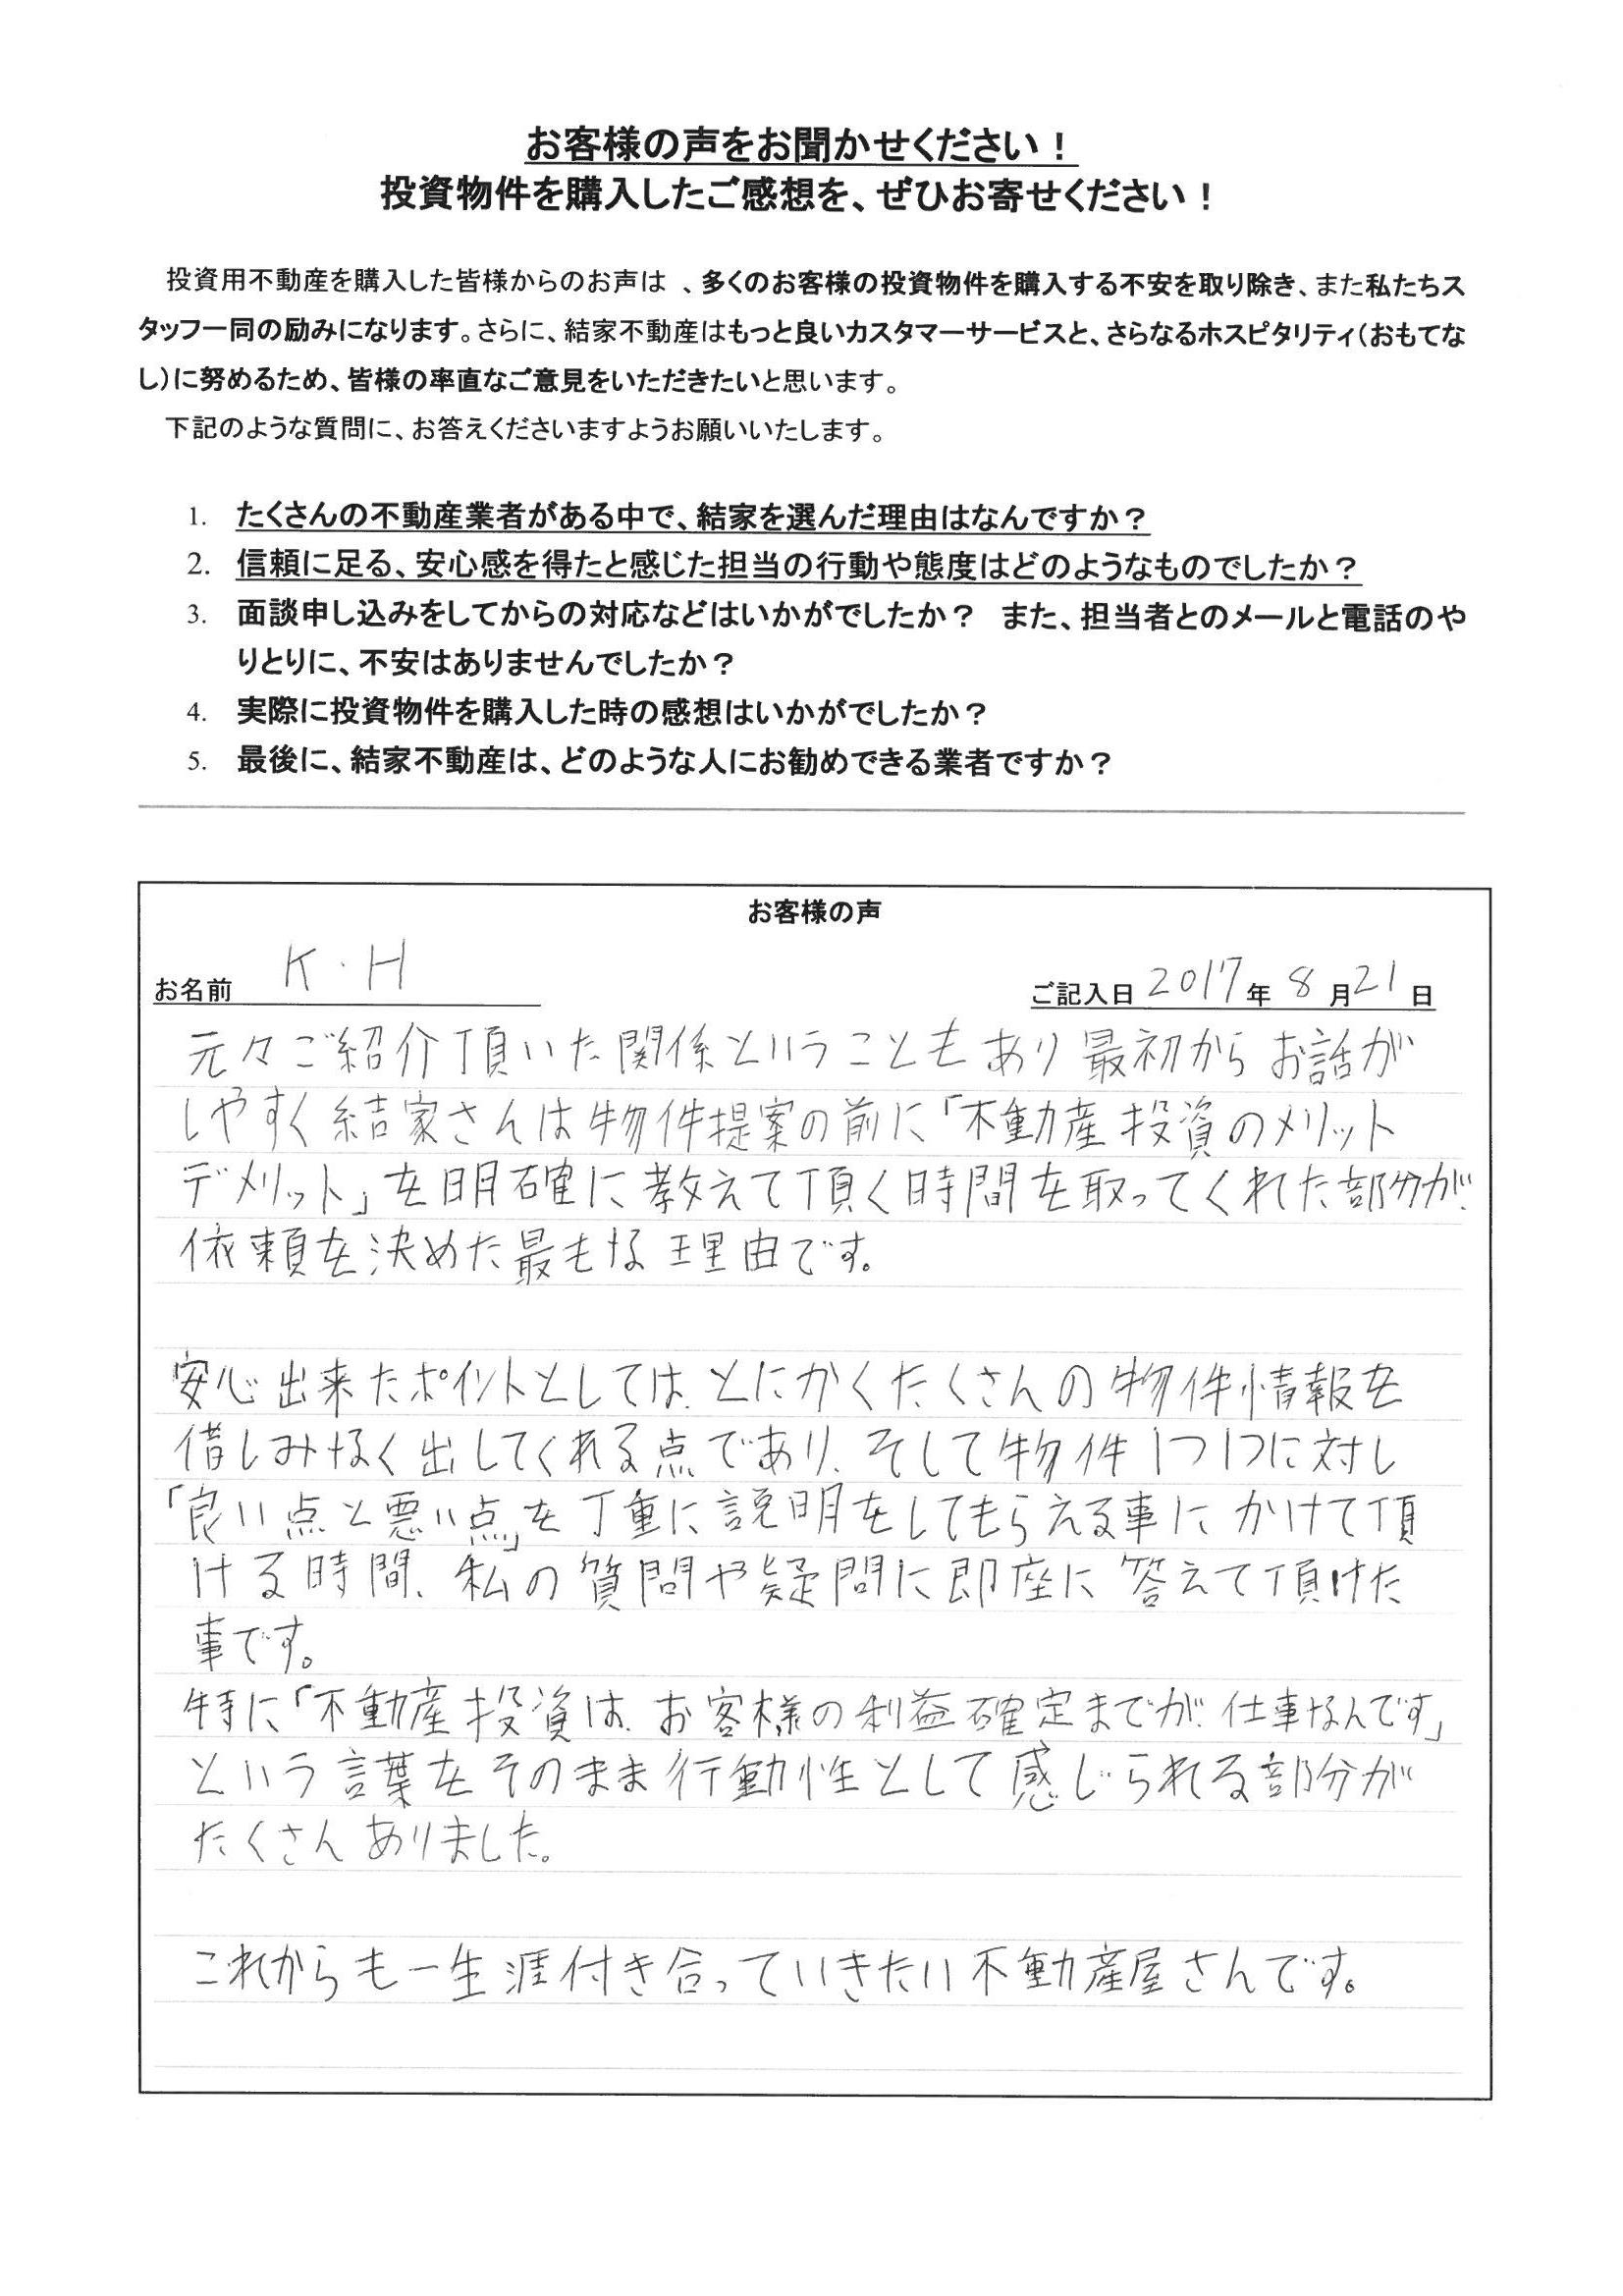 お客様の声をお聞かせください！
投資物件を購入したご感想を、ぜひお寄せください！
投資用不動産を購入した皆様からのお声は 、多くのお客様の投資物件を購入する不安を取り除き、また私たちス
タッフ一同の励みになります。さらに、結家不動産はもっと良いカスタマーサービスと、さらなるホスピタリティ（おもてな
し）に努めるため、皆様の率直なご意見をいただきたいと思います。
下記のような質問に、お答えくださいますようお願いいたします。
1. たくさんの不動産業者がある中で、結家を選んだ理由はなんですか？
2. 信頼に足る、安心感を得たと感じた担当の行動や態度はどのようなものでしたか？
3. 面談申し込みをしてからの対応などはいかがでしたか？ また、担当者とのメールと電話のや
りとりに、不安はありませんでしたか？
4. 実際に投資物件を購入した時の感想はいかがでしたか？
5. 最後に、結家不動産は、どのような人にお勧めできる業者ですか？
お客様の声
お名前 K・H ご記入日 2017年 8月21日
元々ご紹介頂いた関係ということもあり最初からお話が
しやすく結家さんは物件提案の前に「不動産投資のメリット
デメリット」を明確に教えて頂く時間を取ってくれた部分が、
依頼を決めた最もな理由です。
安心出来たポイントとしては、とにかくたくさんの物件情報を
借しみなく出してくれる点であり、そして物件1つ1つに対し
「良い点と悪い点」を丁重に説明をしてもらえる事にかけて頂
ける時間、私の質問や疑問に即座に答えて頂けた
事です。
特に「不動産投資は、お客様の利益確定までが、仕事なんです」
という言葉をそのまま行動性として感じられる部分が
たくさんありました。
これからも一生涯付き合っていきたい不動産屋さんです。